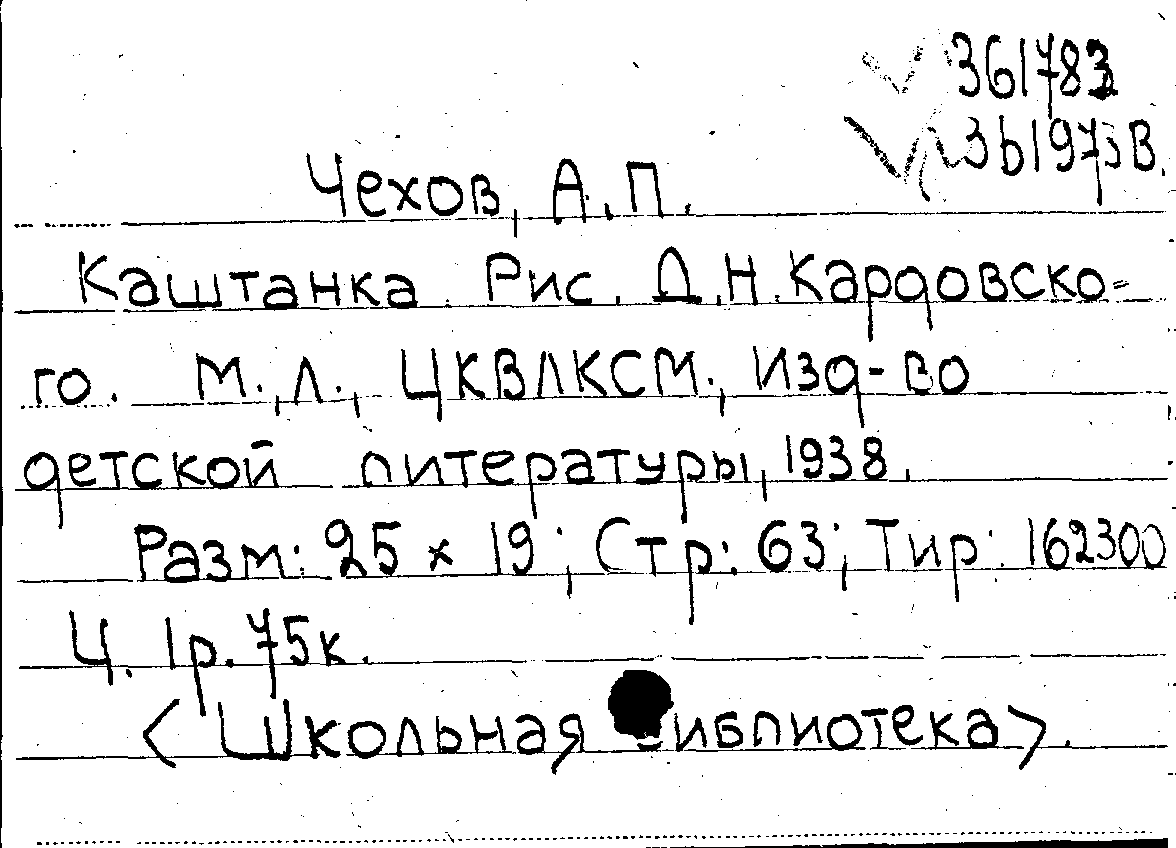 361783
361973 В.
Чехов, А.П.
Каштанка. Рис. Д.Н.Кардовско-
го. М., Л., ЦКВЛКСМ., Изд-во
детской литературы, 1938.
Разм: 25 x 19; Стр: 63; Тир: 162300
Ц. 1р. 75к.
<Школьная библиотека>.